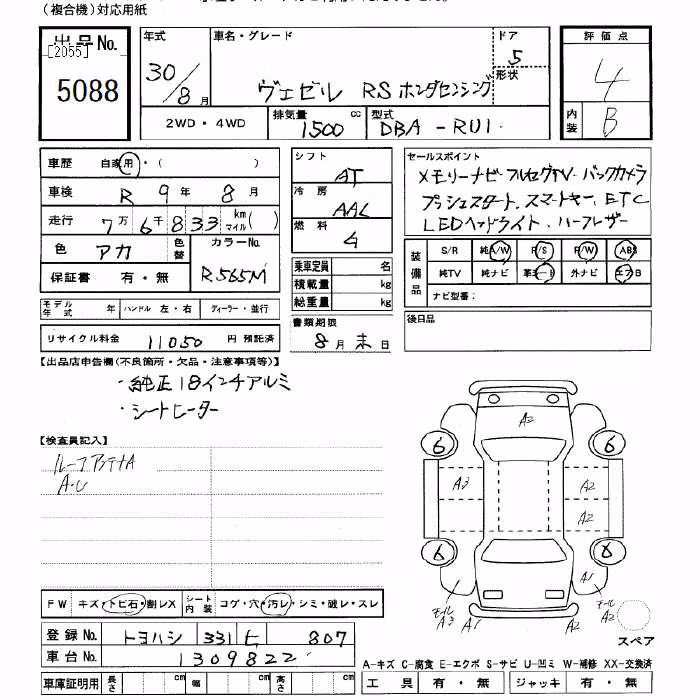 (複合機)対応用紙
出品No.
[2055]
5088
年式 30/8月
車名・グレード ヴェゼル RS ホンダセンシング
ドア 5
形状
評価点 4
内装 B
2WD・4WD
排気量 1500 cc
型式 DBA-RU1
車歴 自家用・( )
車検 R 9年 8月
走行 7万6千833 km マイル( )
色 アカ 色替
カラーNo. R565M
保証書 有・無
モデル年式 年 ハンドル 左・右 ディーラー・並行
リサイクル料金 11050 円 預託済
シフト AT
冷房 AAC
燃料 G
乗車定員 名
積載量 kg
総重量 kg
書類期限 8月末日
セールスポイント
メモリーナビ フルセグTV. バックカメラ
プッシュスタート、スマートキー、ETC
LEDヘッドライト、ハーフレザー
装備品
S/R 純A/W P/S P/W ABS
純TV 純ナビ 革シート 外ナビ エアB
ナビ型番:
後日品
【出品店申告欄(不良箇所・欠品・注意事項等)】
・純正18インチアルミ
・シートヒーター
【検査員記入】
ルーフアンテナA
A・U
A2
6 6
A3 A2
A2
6 6
A1
モール A3 A1
モール A2
スペア
FW キズ・トビ石・割レX
シート内装 コゲ・穴・汚レ・シミ・破レ・スレ
登録No. トヨハシ 331 ヒ 807
車台No. 1309822
車庫証明用 長さ cm 幅 cm 高さ cm
A-キズ C-腐食 E-エクボ S-サビ U-凹ミ W-補修 XX-交換済
工具 有・無 ジャッキ 有・無